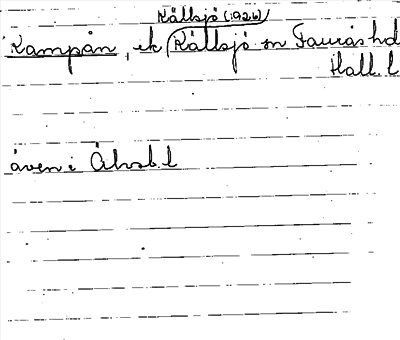 Källsjö (1926)
Kampån, ek Källsjö sn Faurås hd
Hall. l
även i Älvsb. l